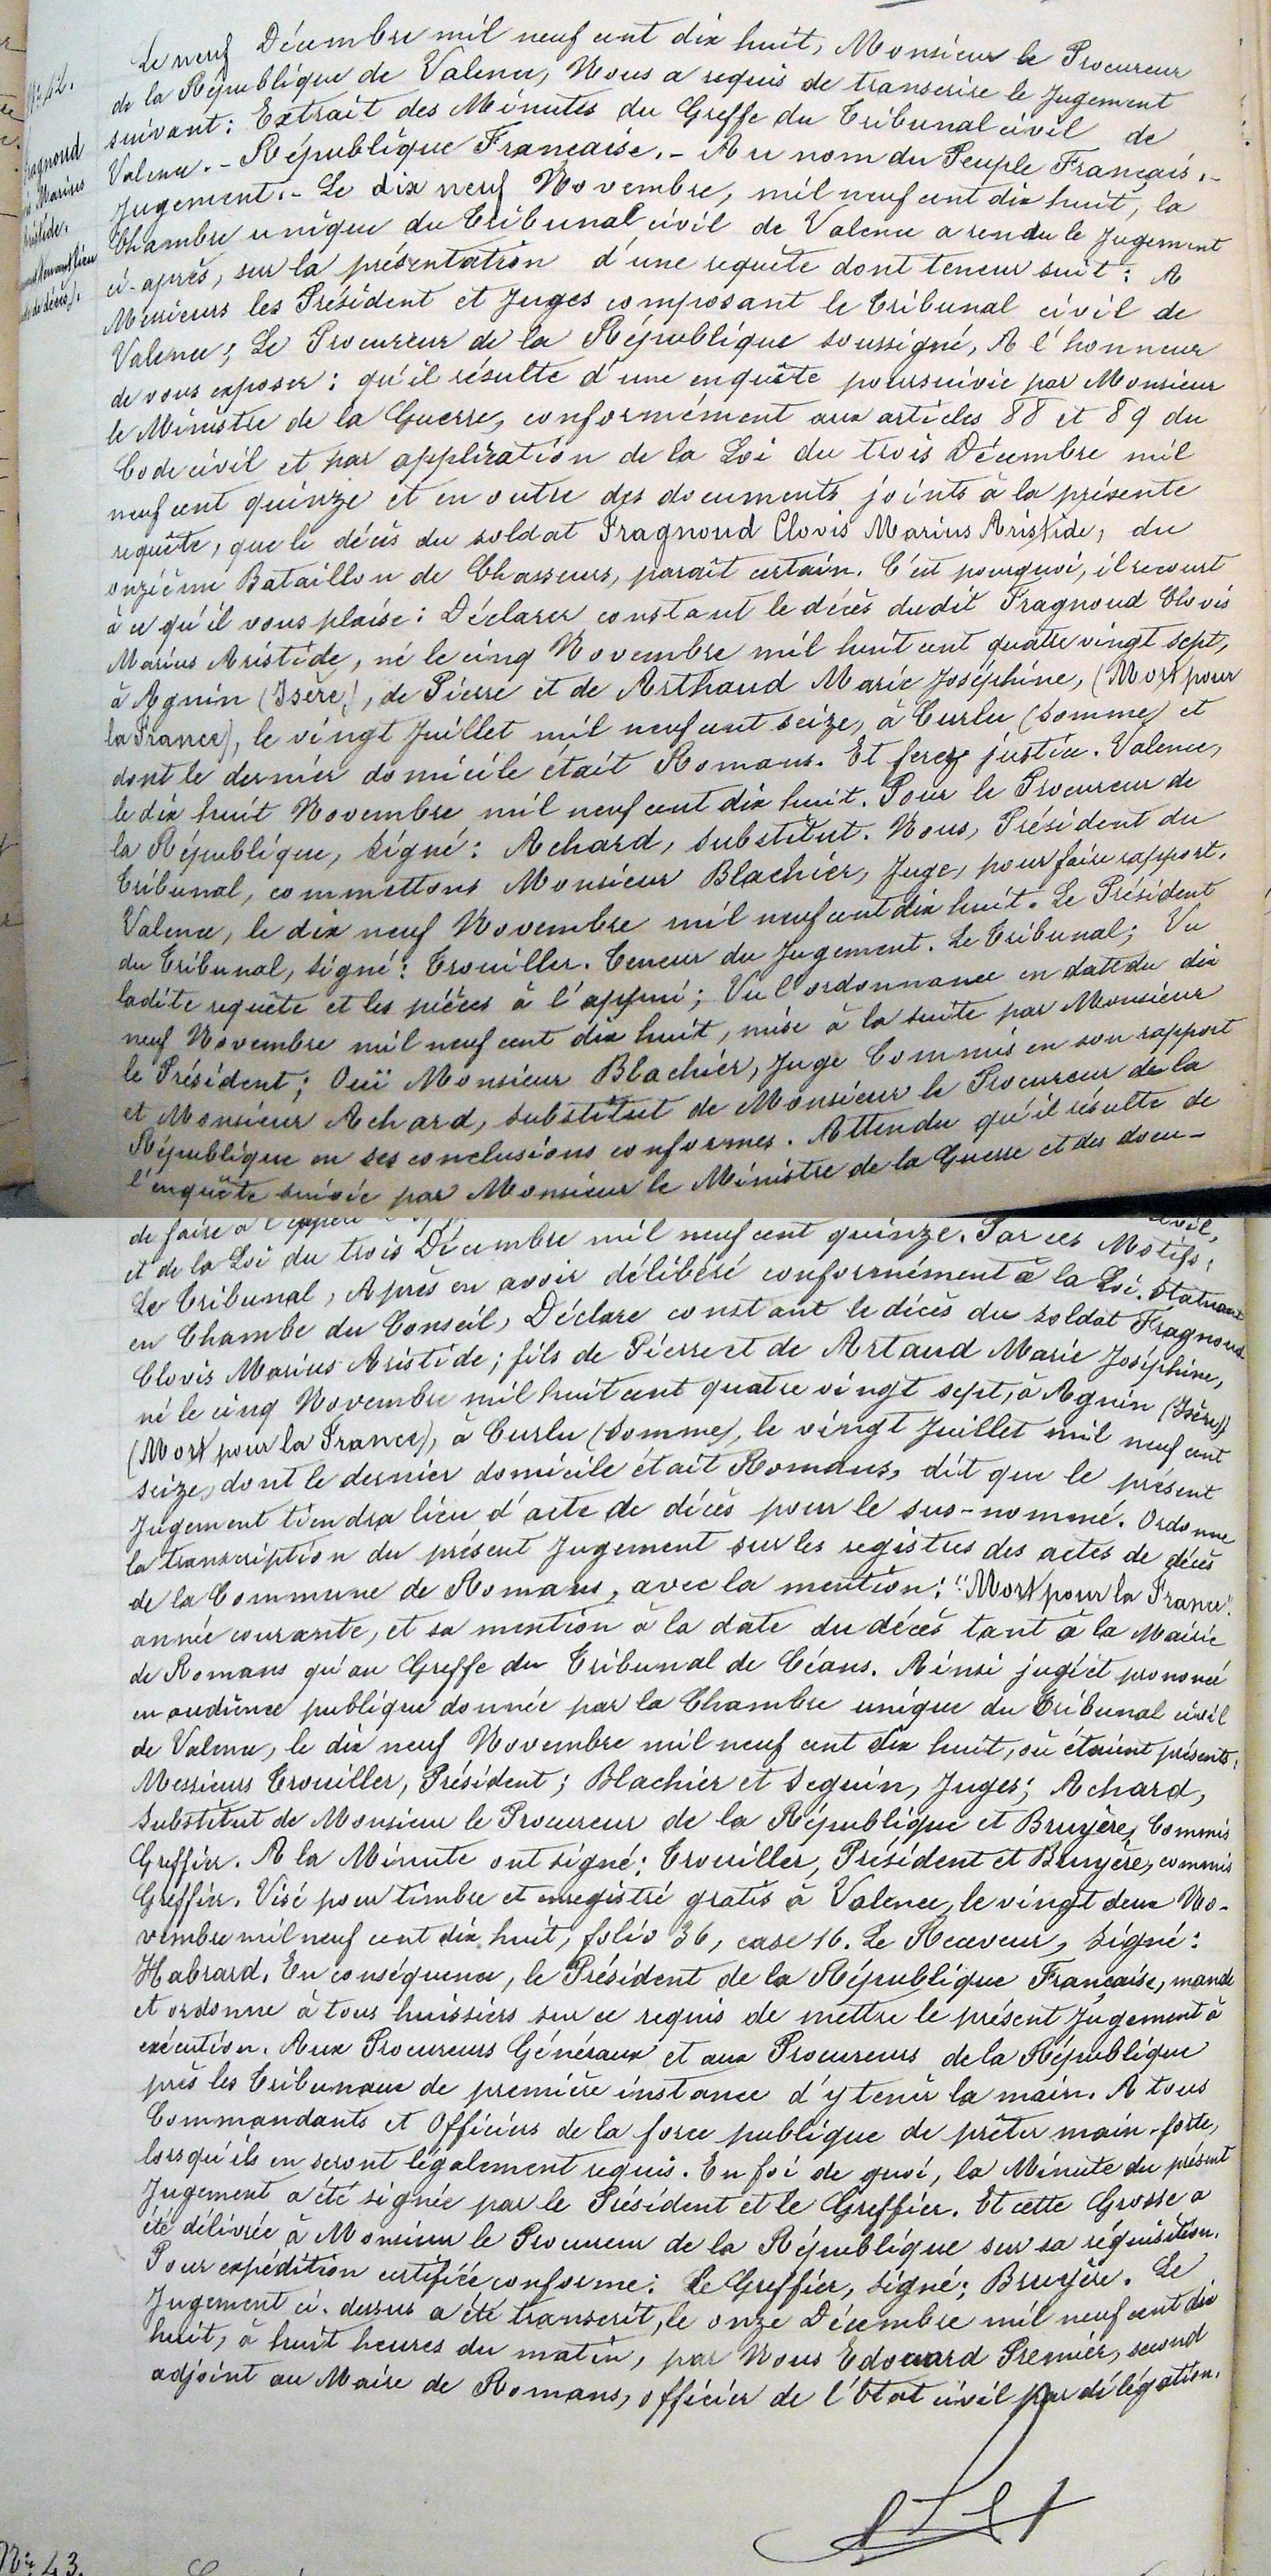 Le neuf Décembre mil neuf cent dix huit, Monsieur le Procureur
de la République de Valence, Nous a requis de transcrire le Jugement
suivant : Extrait des Minutes du Greffe du Tribunal civil de
Valence. - République Française. - Au nom du Peuple Français. -
Jugement. - Le dix neuf Novembre, mil neuf cent dix huit, la
Chambre unique du Tribunal civil de Valence a rendu le Jugement
ci-après, sur la présentation d'une requête dont teneur suit : A
Messieurs les Président et Juges composant le Tribunal civil de
Valence ; Le Procureur de la République soussigné, A l'honneur
de vous exposer : qu'il résulte d'une enquête poursuivie par Monsieur
le Ministre de la Guerre, conformément aux articles 88 et 89 du
Code civil et par application de la Loi du trois Décembre mil
neuf cent quinze et en outre des documents joints à la présente
requête, que le décès du soldat Fragnoud Clovis Marius Aristide, du
onzième Bataillon de Chasseurs, paraît certain. C'est pourquoi, il recourt
à ce qu'il vous plaise : Déclarer constant le décès dudit Fragnoud Clovis
Marius Aristide, né le cinq Novembre mil huit cent quatre vingt sept,
à Agnin (Isère), de Pierre et de Arthaud Marie Joséphine, (Mort pour
la France), le vingt Juillet mil neuf cent seize, à Curlu (Somme) et
dont le dernier domicile était Romans. Et ferez justice. Valence,
le dix huit Novembre mil neuf cent dix huit. Pour le Procureur de
la République, Signé : Achard, Substitut. Nous, Président du
Tribunal, commettons Monsieur Blachier, Juge, pour faire rapport.
Valence, le dix neuf Novembre mil neuf cent dix huit. Le Président
du Tribunal, signé : Trouiller. Teneur du Jugement. Le Tribunal ; Vu
ladite requête et les pièces à l'appui ; Vu l'ordonnance en date du dix
neuf Novembre mil neuf cent dix huit, mise à la suite par Monsieur
le Président ; Ouï Monsieur Blachier, Juge Commis en son rapport
et Monsieur Achard, Substitut de Monsieur le Procureur de la
République en ses conclusions conformes. Attendu qu'il résulte de
l'enquête suivie par Monsieur le Ministre de la Guerre et des docu-
de faire à civil,
et de la Loi du trois Décembre mil neuf cent quinze. Par ces Motifs ;
Le Tribunal, Après en avoir délibéré conformément à la Loi. Statuant
en Chambe du Conseil, Déclare constant le décès du soldat Fragnoud
Clovis Marius Aristide ; fils de Pierre et de Artaud Marie Joséphine,
né le cinq Novembre mil huit cent quatre vingt sept, à Agnin (Isère))
(Mort pour la France), à Curlu (Somme), le vingt Juillet mil neuf cent
seize, dont le dernier domicile était Romans, dit que le présent
Jugement tiendra lieu d'acte de décès pour le sus-nommé. Ordonne
la transcription du présent Jugement sur les registres des actes de décès
de la Commune de Romans, avec la mention : "Mort pour la France".
année courante, et sa mention à la date du décès tant à la Mairie
de Romans qu'au Greffe du Tribunal de Céans. Ainsi jugé et prononcé
en audience publique donnée par la Chambre unique du Tribunal civil
de Valence, le dix neuf Novembre mil neuf cent dix huit, où étaient présents :
Messieurs Trouiller, Président ; Blachier et Seguin, Juges ; Achard,
Substitut de Monsieur le Procureur de la République et Bruyère, Commis
Greffier. A la Minute ont signé : Trouiller, Président et Bruyère, commis
Greffier. Visé pour timbre et enregistré gratis à Valence, le vingt deux No-
vembre mil neuf cent dix huit, folio 36, case 16. Le Receveur, Signé :
Habrard. En conséquence, le Président de la République Française, mande
et ordonne à tous huissiers sur ce requis de mettre le présent Jugement à
exécution. Aux Procureurs Généraux et aux Procureurs de la République
près les Tribunaux de première instance d'y tenir la main. A tous
Commandants et Officiers de la force publique de prêter main-forte,
lorsqu'ils en seront légalement requis. En foi de quoi, la Minute du présent
Jugement a été signée par le Président et le Greffier. Et cette Grosse a
été délivrée à Monsieur le Procureur de la République sur sa réquisition.
Pour expédition certifiée conforme : Le Greffier, signé : Bruyère. Le
Jugement ci-dessus a été transcrit, le onze Décembre mil neuf cent dix
huit, à huit heures du matin, par Nous Edouard Premier, second
adjoint au Maire de Romans, officier de l'Etat civil par délégation.
N° 43.